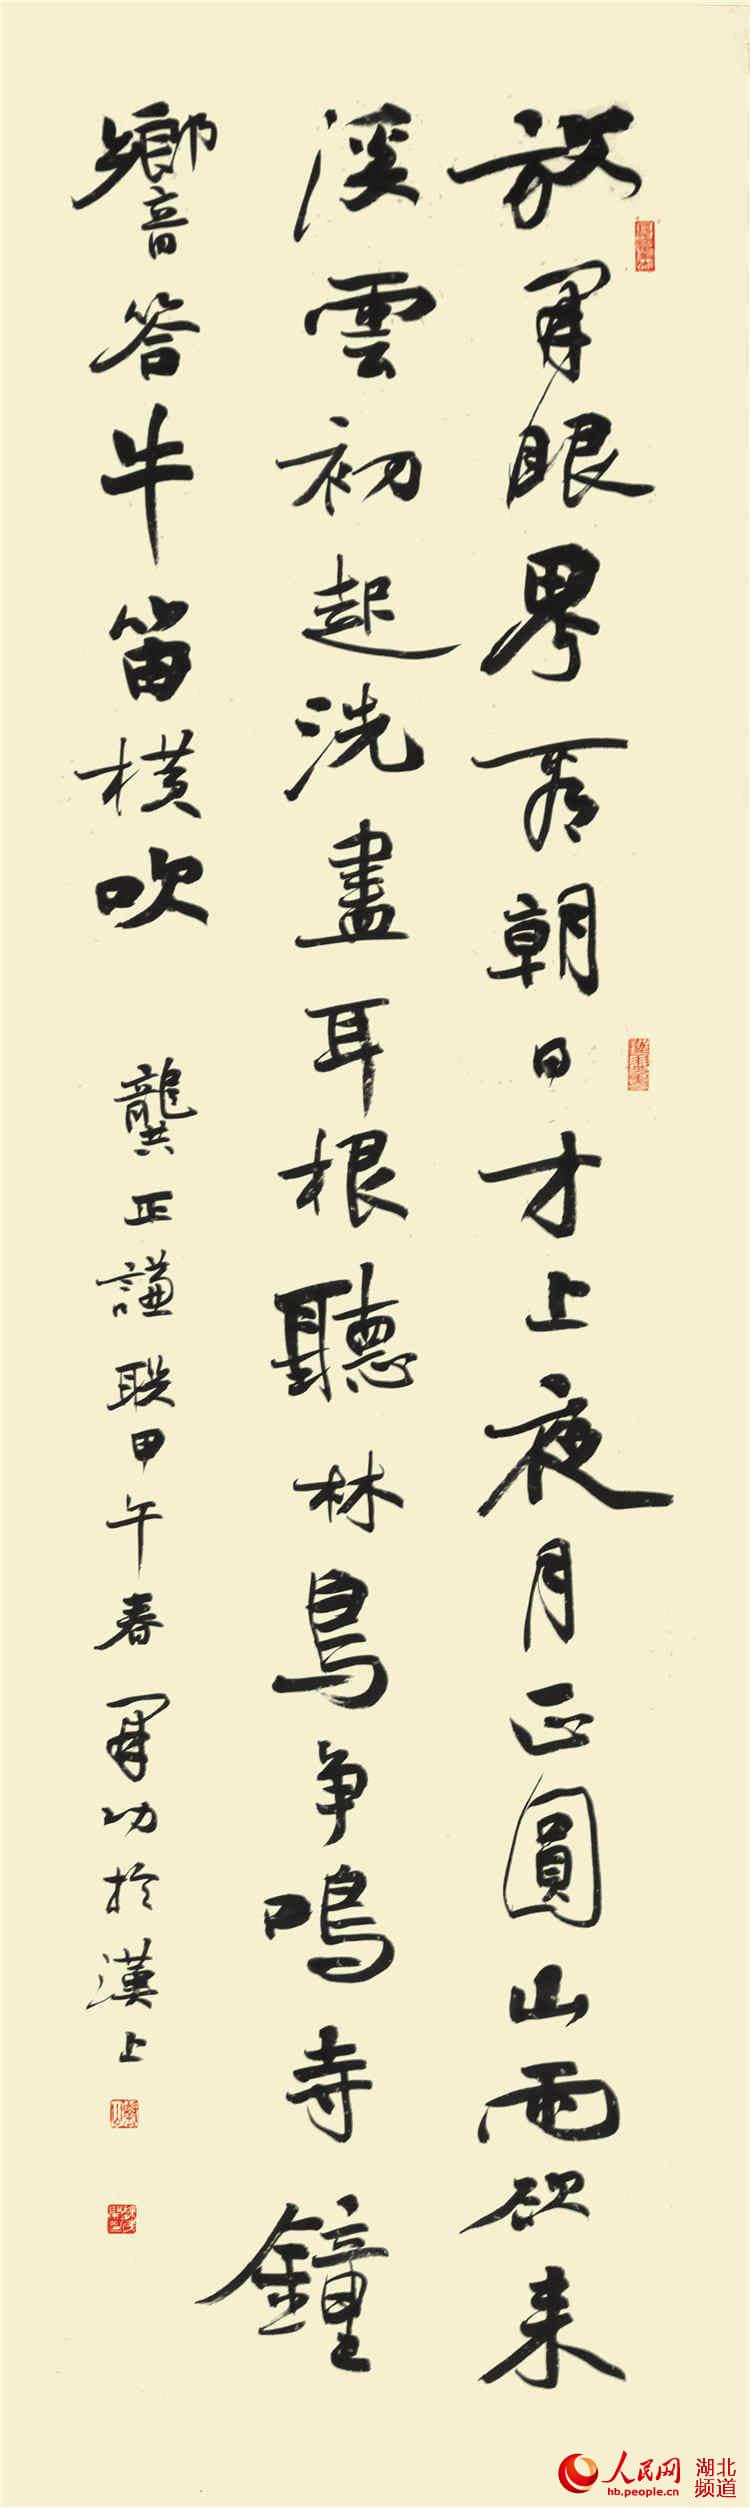 放開眼界看朝日才上夜月正圓山雨欲来
溪雲初起洗盡耳根聽林鳥争鳴寺鐘
響答牛笛橫吹 龔正謙联甲午春開功於漢上
人民网 湖北频道
hb.people.cn